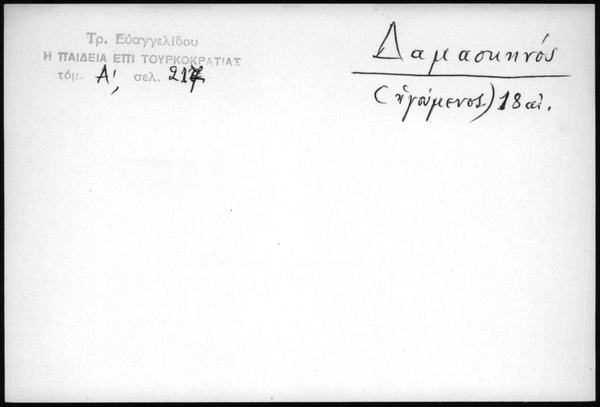 Τρ. Εὐαγγελίδου
Η ΠΑΙΔΕΙΑ ΕΠΙ ΤΟΥΡΚΟΚΡΑΤΙΑΣ
τόμ. Α', σελ. 217
Δαμασκηνός
(ἡγούμενος) 18 αἰ.